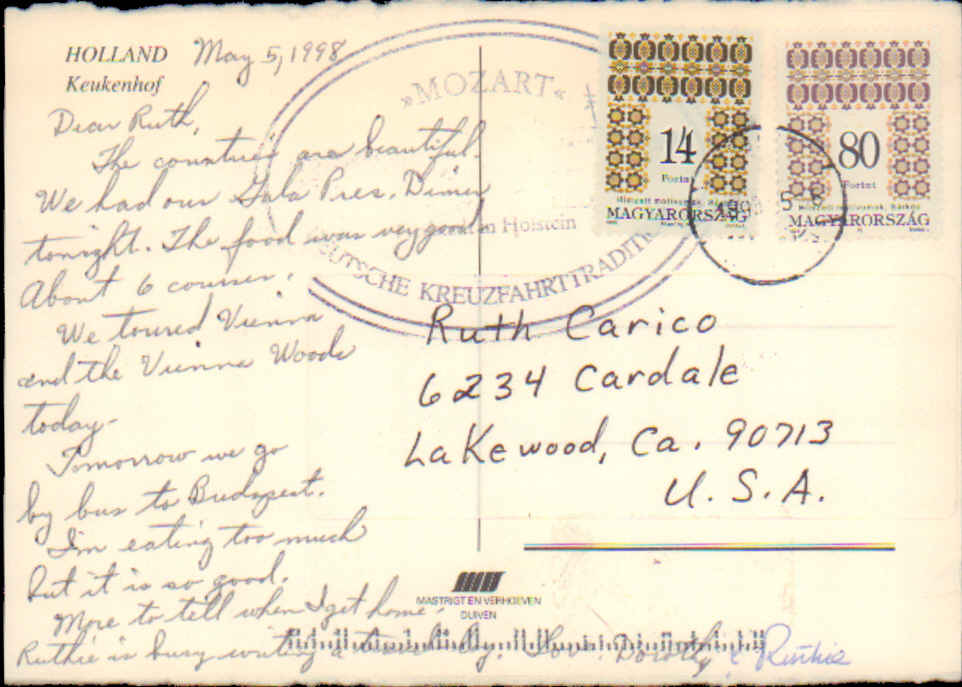 HOLLAND
Keukenhof
May 5, 1998
Dear Ruth,
The countries are beautiful.
We had our Gala Pres. Dinner
tonight. The food was very good.
About 6 courses.
We toured Vienna
and the Vienna Woods
today.
Tomorrow we go
by bus to Budapest.
I'm eating too much
but it is so good.
More to tell when I get home.
Ruthie is busy writing a
Love. Dorothy & Ruthie
»MOZART«
Holstein
DEUTSCHE KREUZFAHRTTRADITION
14
Forint
MAGYARORSZÁG
80
Forint
MAGYARORSZÁG
Ruth Carico
6234 Cardale
Lakewood, Ca. 90713
U. S. A.
MASTRIGT EN VERHOEVEN
DUIVEN